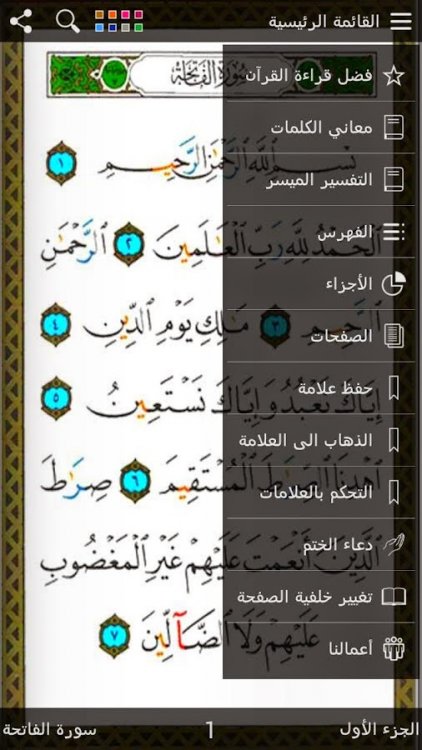 القائمة الرئيسية
سورة الفاتحة
فضل قراءة القرآن
معاني الكلمات
التفسير الميسر
الفهرس
الأجزاء
الصفحات
حفظ علامة
الذهاب الى العلامة
التحكم بالعلامات
دعاء الختم
تغيير خلفية الصفحة
أعمالنا
بِسْمِ ٱللَّهِ ٱلرَّحْمَٰنِ ٱلرَّحِيمِ ١
ٱلْحَمْدُ لِلَّهِ رَبِّ ٱلْعَٰلَمِينَ ٢ ٱلرَّحْمَٰنِ
ٱلرَّحِيمِ ٣ مَٰلِكِ يَوْمِ ٱلدِّينِ ٤
إِيَّاكَ نَعْبُدُ وَإِيَّاكَ نَسْتَعِينُ ٥
ٱهْدِنَا ٱلصِّرَٰطَ ٱلْمُسْتَقِيمَ ٦ صِرَٰطَ
ٱلَّذِينَ أَنْعَمْتَ عَلَيْهِمْ غَيْرِ ٱلْمَغْضُوبِ
عَلَيْهِمْ وَلَا ٱلضَّآلِّينَ ٧
الجزء الأول 1 سورة الفاتحة